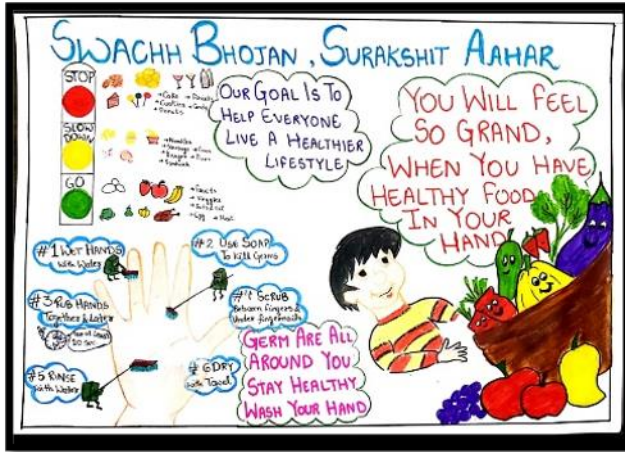 SWACHH BHOJAN, SURAKSHIT AAHAR
STOP
→ Cake
→ Cookies
→ Donuts
SLOW
DOWN
→ Noodles
→ Sausage
GO
→ Fruits
→ Veggies
→ Egg → Meat
OUR GOAL IS TO
HELP EVERYONE
LIVE A HEALTHIER
LIFESTYLE
YOU WILL FEEL
SO GRAND,
WHEN YOU HAVE
HEALTHY FOOD
IN YOUR
HAND
#1 WET HANDS
with Water
#2 USE SOAP
To Kill Germs
#3 RUB HANDS
Together & Later
#4 SCRUB
Between fingers &
Under fingernails
#5 RINSE
with Water
#6 DRY
with Towel
GERM ARE ALL
AROUND YOU
STAY HEALTHY
WASH YOUR HAND